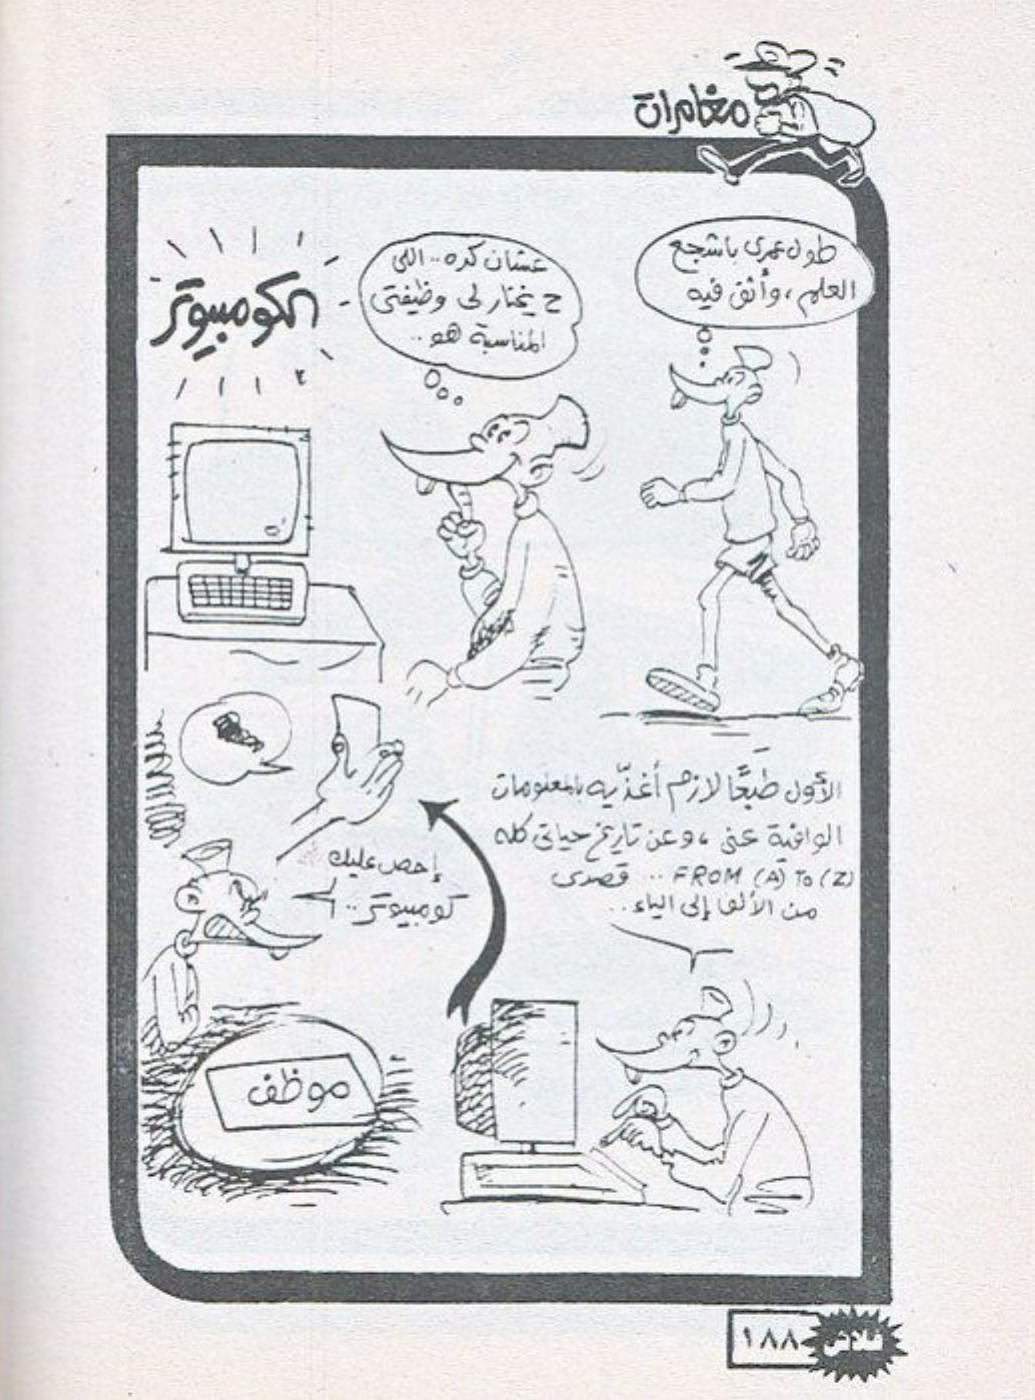 مغامرات
طول عمرى باشجع
العلم، وأثق فيه
عشان كده.. اللى
ح يختار لى وظيفتى
المناسبة هو..
الكومبيوتر
الأول طبعًا لازم أغذّيه بالمعلومات
الوافية عنى، وعن تاريخ حياتى كله
FROM (A) To (Z) ... قصدى
من الألف إلى الياء..
إخص عليك
كومبيوتر..
موظف
فلاش
١٨٨